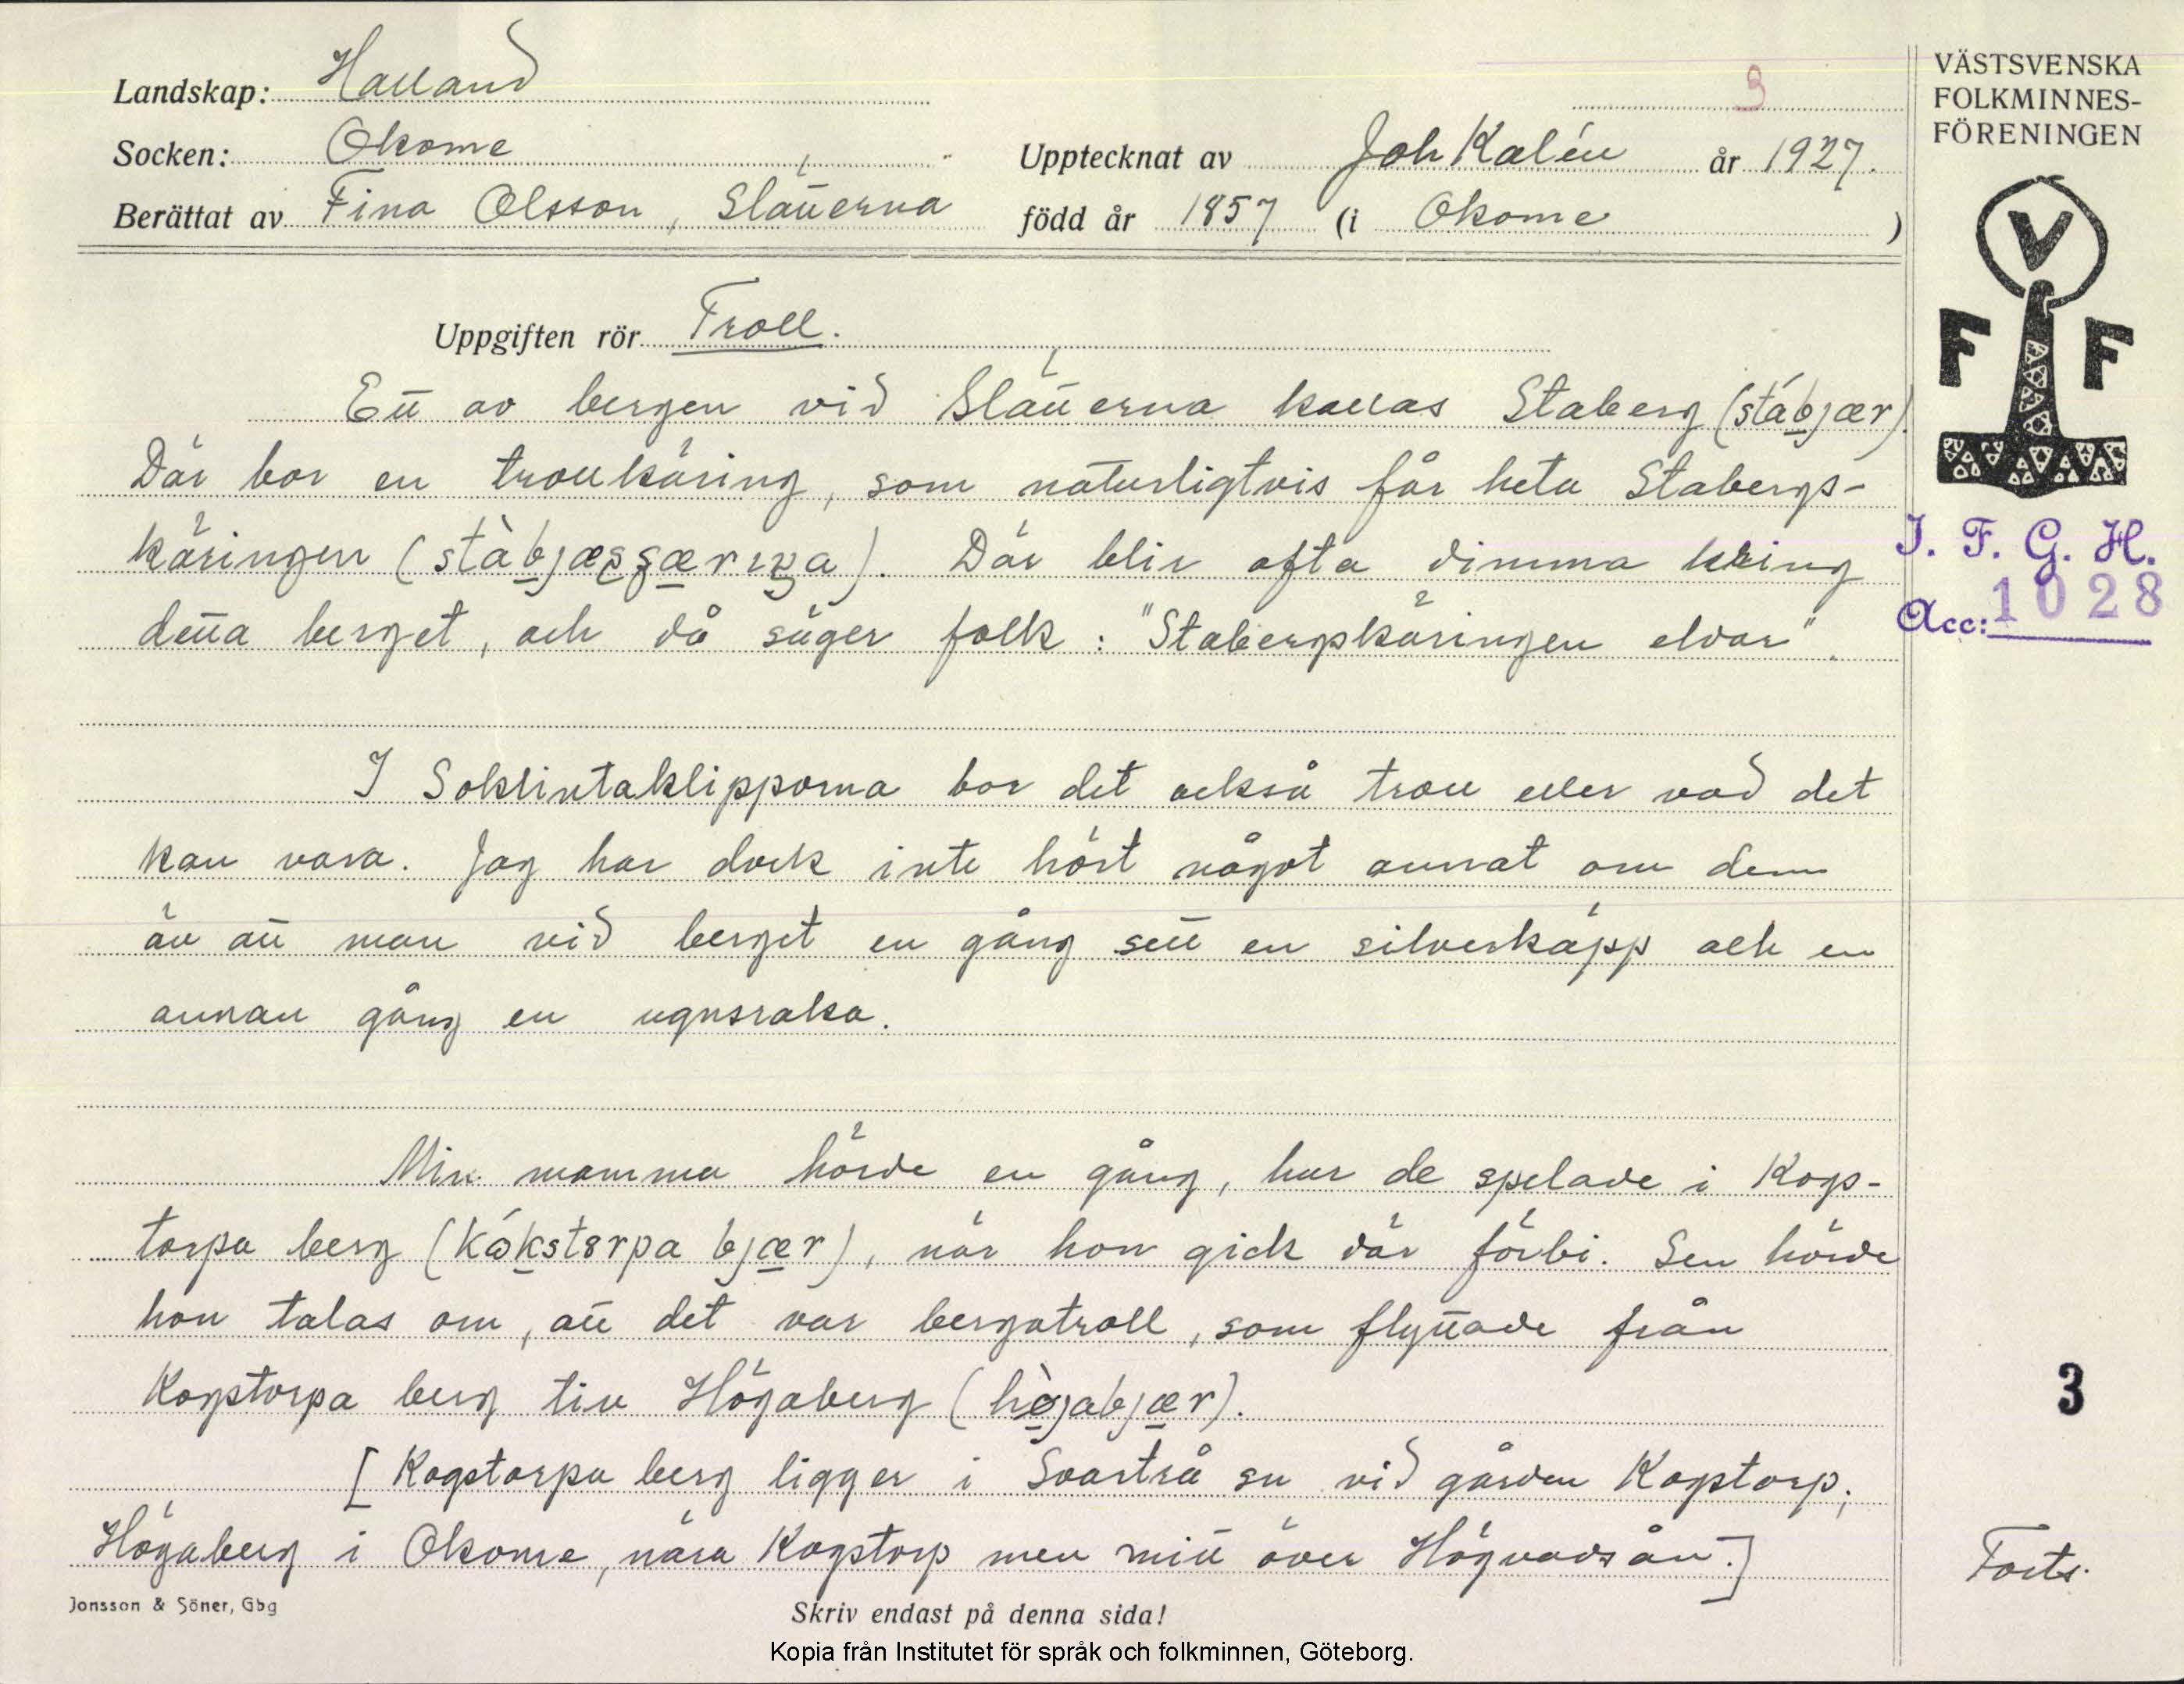 Landskap: Halland
Socken: Okome
Berättat av Fina Olsson, Slätterna
Upptecknat av Joh Kalén år 1927.
född år 1857 (i Okome )
3
VÄSTSVENSKA
FOLKMINNES-
FÖRENINGEN
V
F F
I. F. G. H.
Acc: 1028
Uppgiften rör Troll.
Ett av bergen vid Slätterna kallas Staberg (stábjær).
Där bor en trollkäring, som naturligtvis får heta Stabergs-
käringen (). Där blir ofta dimma kring
detta berget, och då säger folk: "Stabergskäringen eldar".
I Soklintaklipporna bor det också troll eller vad det
kan vara. Jag har dock inte hört något annat om dem
än att man vid berget en gång sett en silverkäpp och en
annan gång en ugnsraka.
Min mamma hörde en gång, hur de spelade i Kogs-
torpa berg (kákstorpa bjær), när hon gick där förbi. Sen hörde
hon talas om, att det var bergatroll, som flyttade från
Kogstorpa berg till Högaberg (hø̀jabjær).
[Kogstorpa berg ligger i Svartrå sn vid gården Kogstorp;
Högaberg i Okome, nära Kogstorp men mitt över Högvadsån.]
3
Forts.
Jonsson & Söner, Gbg
Skriv endast på denna sida!
Kopia från Institutet för språk och folkminnen, Göteborg.